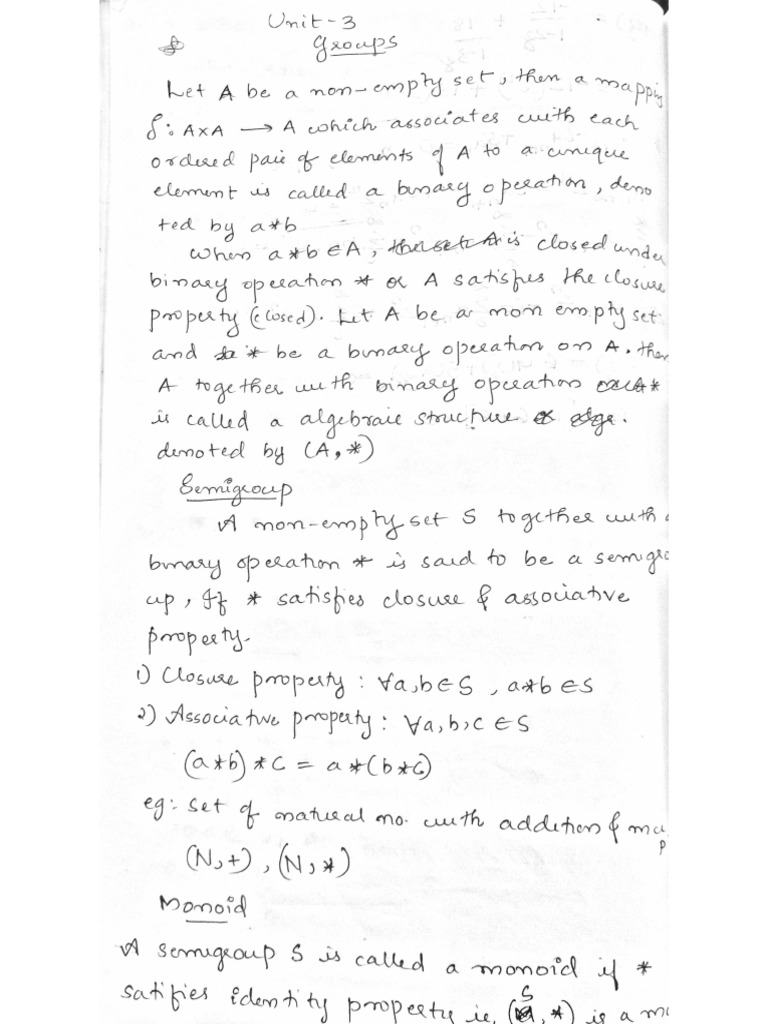 Unit-3
Groups
Let A be a non-empty set, then a mappin
f: A×A → A which associates with each
ordered pair of elements of A to a unique
element is called a binary operation, deno
ted by a*b
when a*b ∈ A, the set A is closed unde
binary operation * or A satisfies the closure
property (closed). Let A be a non empty set
and * be a binary operation on A. then
A together with binary operation *
is called a algebraic structure.
denoted by (A, *)
Semigroup
A non-empty set S together with a
binary operation * is said to be a semigro
up, If * satisfies closure & associative
property.
1) Closure property : ∀a,b∈S , a*b ∈S
2) Associative property : ∀a,b,c ∈S
(a*b)*c = a*(b*c)
eg: set of natural no. with addition & mu
p
(N,+), (N,*)
Monoid
A semigroup S is called a monoid if *
satifies identity property ie, (S, *) is a mo